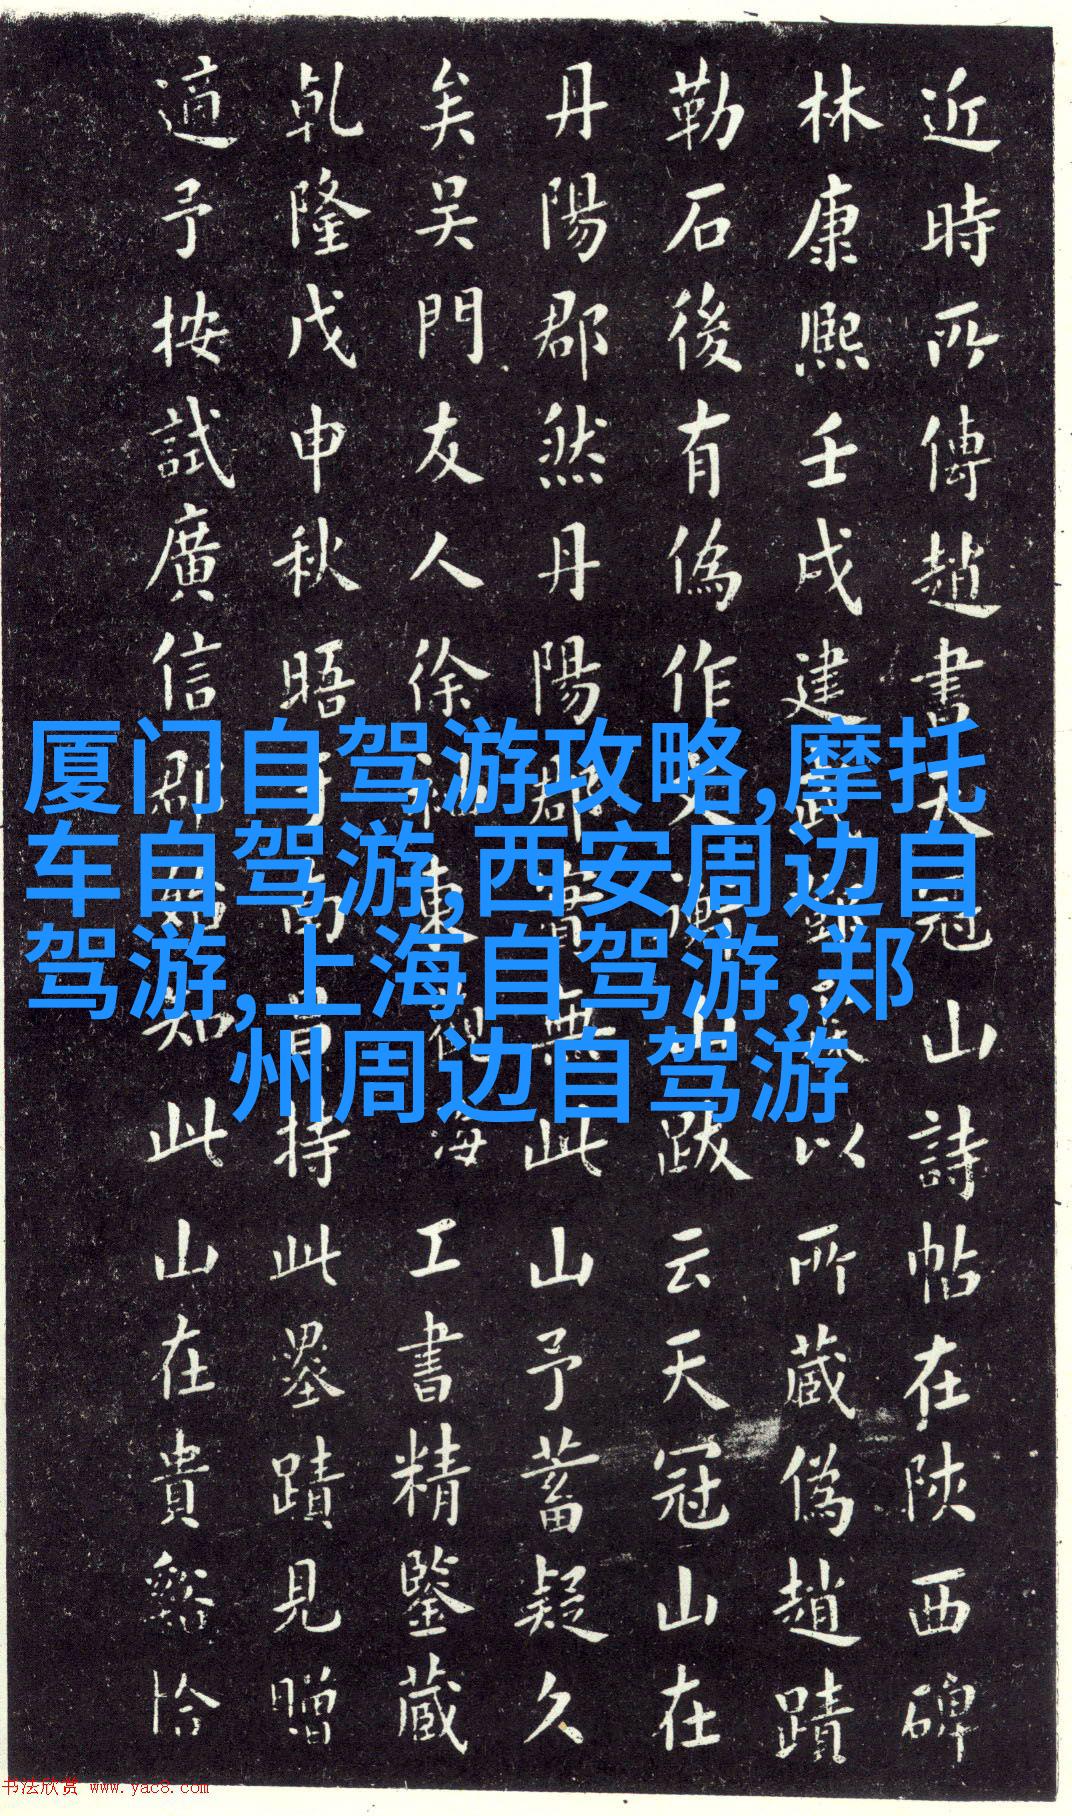 近時所傳趙書天冠山詩帖在陝西碑
林康熙壬戌建武以所藏偽趙蹟
勒石後有偽作文衡山跋云天冠山在
丹陽郡然丹陽郡實無此山予蓄疑久
矣吳門友人徐東海工書精鑒藏
乾隆戊申秋晤于南昌持此墨蹟見贈
適予按試廣信郡始知此山在貴谿恰
厦门自驾游攻略,摩托
车自驾游,西安周边自
驾游,上海自驾游,郑
州周边自驾游
书法欣赏 www.yac8.com